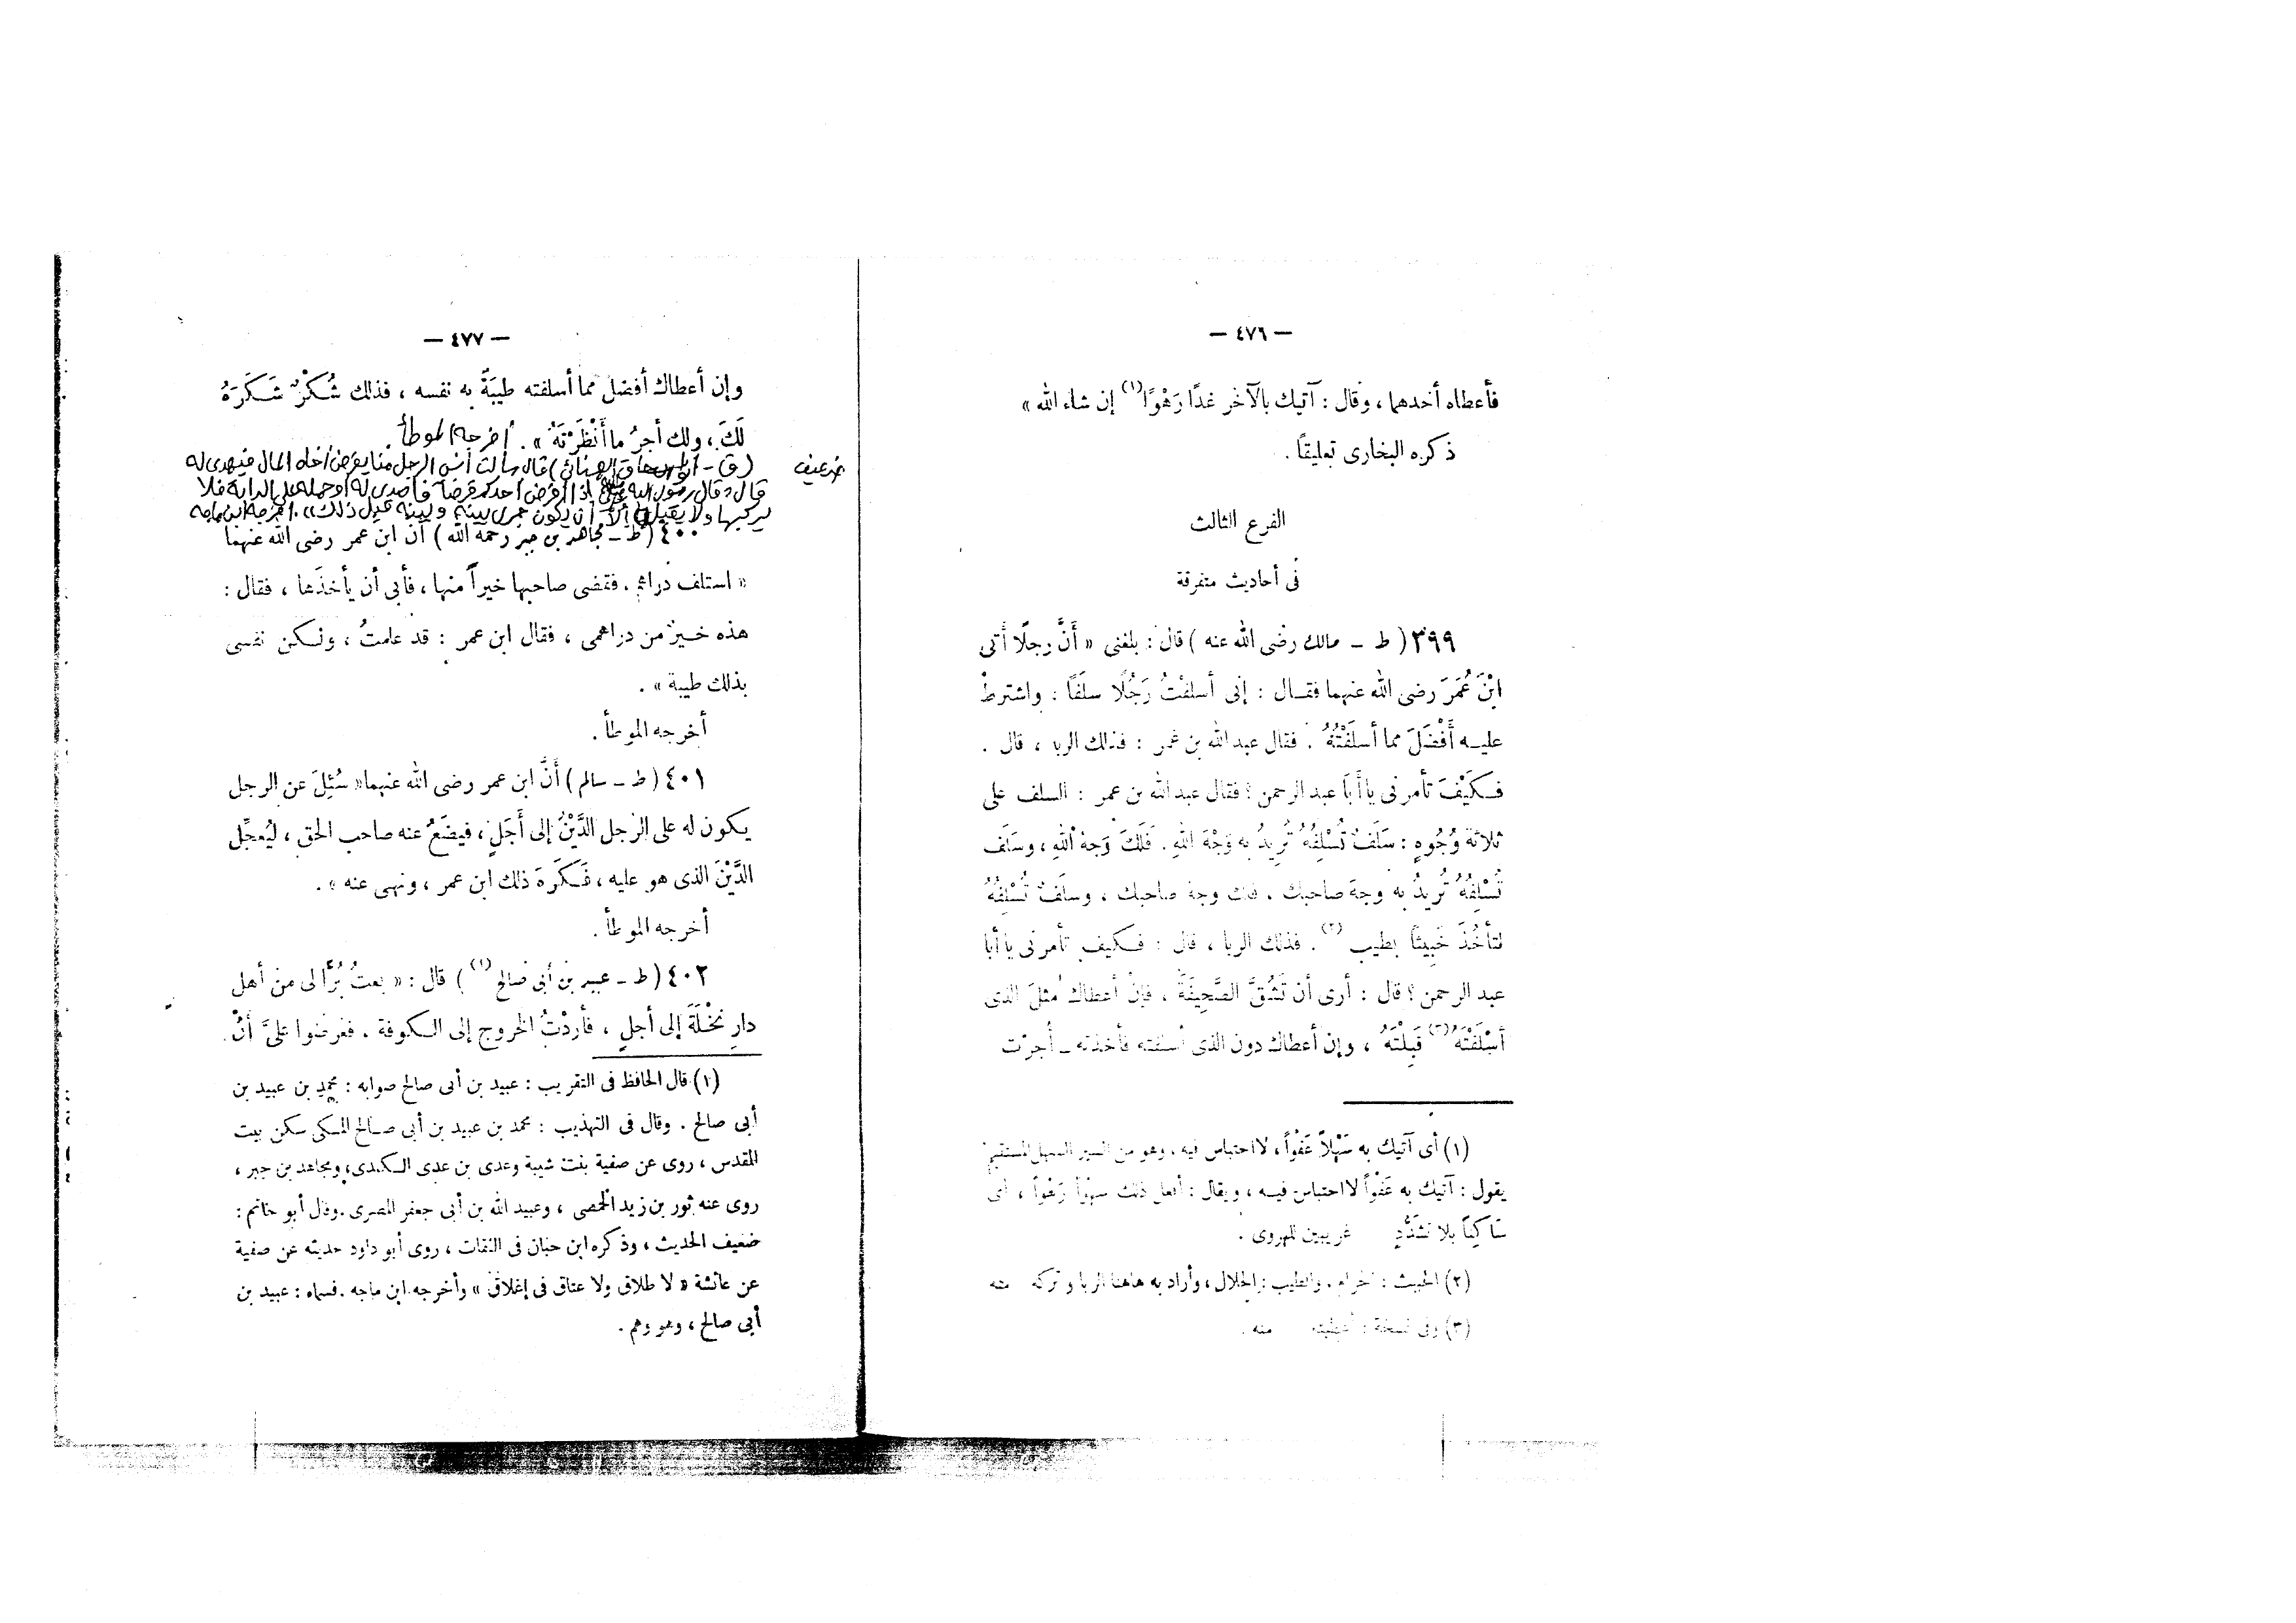 — ٤٧٦ —
فأعطاه أحدهما ، وقال : آتيك بالآخر غدًا رَهْوًا (١) إن شاء الله »
ذكره البخارى تعليقًا .
الفرع الثالث
فى أحاديث متفرقة
٣٩٩ ( ط ـ مالك رضى الله عنه ) قال : بلغنى « أَنَّ رجلًا أَتى
ابْنَ عُمَرَ رضى الله عنهما فقـال : إنى أسلفْتُ رَجُلًا سلَفًا . واشترطْ
عليـه أَفْضَلَ مما أسلَفْتُهُ . فقال عبد الله بن عمر : فذلك الربا ، قال .
فـكَيْفَ تأمرنى يا أَبَا عبد الرحمن ؟ فقال عبد الله بن عمر : السلف على
ثلاثة وُجُوهٍ : سَلَفٌ تُسْلِفُهُ تُرِيدُ به وَجْهَ اللهِ . فَلَكَ وَجهُ اللهِ ، وسَلَف
تُسْلِفُهُ تُرِيدُ به وجهَ صاحبك . فلك وجهُ صاحبك ، وسلَفٌ تُسْلِفُهُ
لتأخُذَ خَبِيثًا بطيب (٢) . فذلك الربا ، قال : فـكيف تأمرنى يا أبا
عبد الرحمن ؟ قال : أرى أن تَشُقَّ الصَّحِيفَةَ ، فإن أعطاك مثلَ الذى
أسْلَفْتَهُ (٣) قَبِلْتَهُ ، وإن أعطاك دون الذى أسلفته فأخذته ـ أُجِرْت
(١) أى آتيك به سَهْلاً عَفْواً ، لا احتباس فيه ، وهو من السير السهل المستقيم
يقول : آتيك به عَفْواً لا احتباس فيـه ، ويقال : أفعل ذلك سهْواً رَهْواً ، أى
سَاكِناً بلا تَشَدُّدٍ غريبين للهروى .
(٢) الخبيث : الحرام . والطيب : الحلال ، وأراد به هاهنا الربا وتركه منه
(٣) وفى نسخة : منه .
— ٤٧٧ —
وإن أعطاك أفضل مما أسلفته طيبَةً به نفسه ، فذلك شُكْرٌ شَـكَرَهُ
لَكَ ، ولك أجرُ ما أَنْظَرْتَهُ » . أخرجه الموطأ .
ضعيف (ق ـ الهنائى) قال سألت أنس الرجل منا يقرض أخاه المال فيهدى له
قال : قال رسول الله إذا أقرض أحدكم قرضاً فأهدى له أو حمله على الدابة فلا
يركبها ولا يقبل إلا أن يكون جرى بينه وبينه قبل ذلك » . أخرجه ابن ماجه
٤٠٠ ( ط ـ مجاهد بن جبر رحمه الله ) أن ابن عمر رضى الله عنهما
« استلف دراهم . فقضى صاحبها خيراً منها ، فأبى أن يأخذَها ، فقال :
هذه خـيرٌ من دراهمى ، فقال ابن عمر : قد علمتُ ، ولـكن نفسى
بذلك طيبة » .
أخرجه الموطأ .
٤٠١ ( ط ـ سالم ) أَنَّ ابن عمر رضى الله عنهما « سُئِلَ عن الرجل
يـكون له على الرجل الدَّيْنُ إلى أَجَلٍ ، فيضَعُ عنه صاحب الحق ، ليُعجِّل
الدَّيْنَ الذى هو عليه ، فَـكَرَهَ ذلك ابن عمر ، ونهى عنه » .
أخرجه الموطأ .
٤٠٢ ( ط ـ عبيد بن أبى صالح (١) ) قال : « بعتُ بُرًّا لى من أهل
دارِ نَخْلَةَ إلى أجلٍ ، فأردْتُ الخروج إلى الـكوفة . فعرضوا علىَّ أنْ
(١) قال الحافظ فى التقريب : عبيد بن أبى صالح صوابه : محمد بن عبيد بن
أبى صالح . وقال فى التهذيب : محمد بن عبيد بن أبى صـالح المـكى سكن بيت
المقدس ، روى عن صفية بنت شيبة وعدى بن عدى الـكندى ، ومجاهد بن جبر ،
روى عنه ثور بن زيد الحمصى ، وعبيد الله بن أبى جعفر المصرى . وقال أبو حاتم :
ضعيف الحديث ، وذكره ابن حبان فى الثقات ، روى أبو داود حديثه عن صفية
عن عائشة « لا طلاق ولا عتاق فى إغلاق » وأخرجه ابن ماجه . فسماه : عبيد بن
أبى صالح ، وهو وهم .